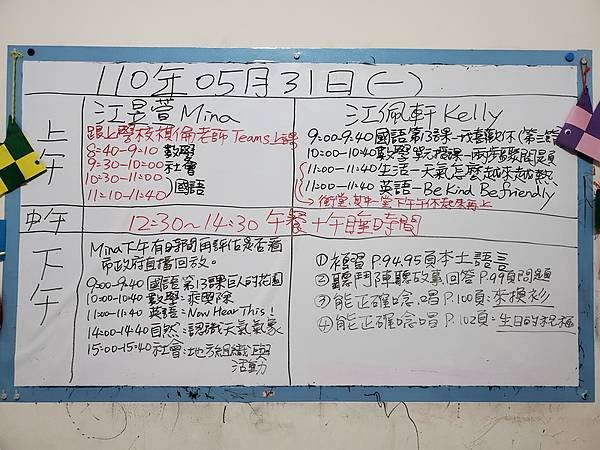 110年05月31日(一)
上午
江昱萱 Mina
跟上學校棋倫老師 Teams上課
8:40-9:10 數學
9:30-10:00 社會
10:30-11:00
11:10-11:40) 國語
江佩軒 Kelly
9:00-9:40 國語第13課-我喜歡你(第三篇
10:00-10:40 數學單元授課-兩步驟問題
11:00-11:40 生活-天氣怎麼越來越熱
11:00-11:40 英語-Be Kind Be friendly
衝堂,其中一堂下午午休起來再上
中午
12:30~14:30 午餐+午睡時間
下午
Mina下午有時間再評估是否看
市政府直播回放。
9:00-9:40 國語第13課巨人的花園
10:00-10:40 數學:乘與除
11:00-11:40 英語:Now Hear This!
14:00-14:40 自然:認識天氣氣象
15:00-15:40 社會:地方組織與
活動
①複習P.94.95頁本土語言
②聽鬥陣聽故事回答P.99頁問題
③能正確唸.唱P.100頁:來換衫
④能正確唸唱P.102頁:生日的祝福